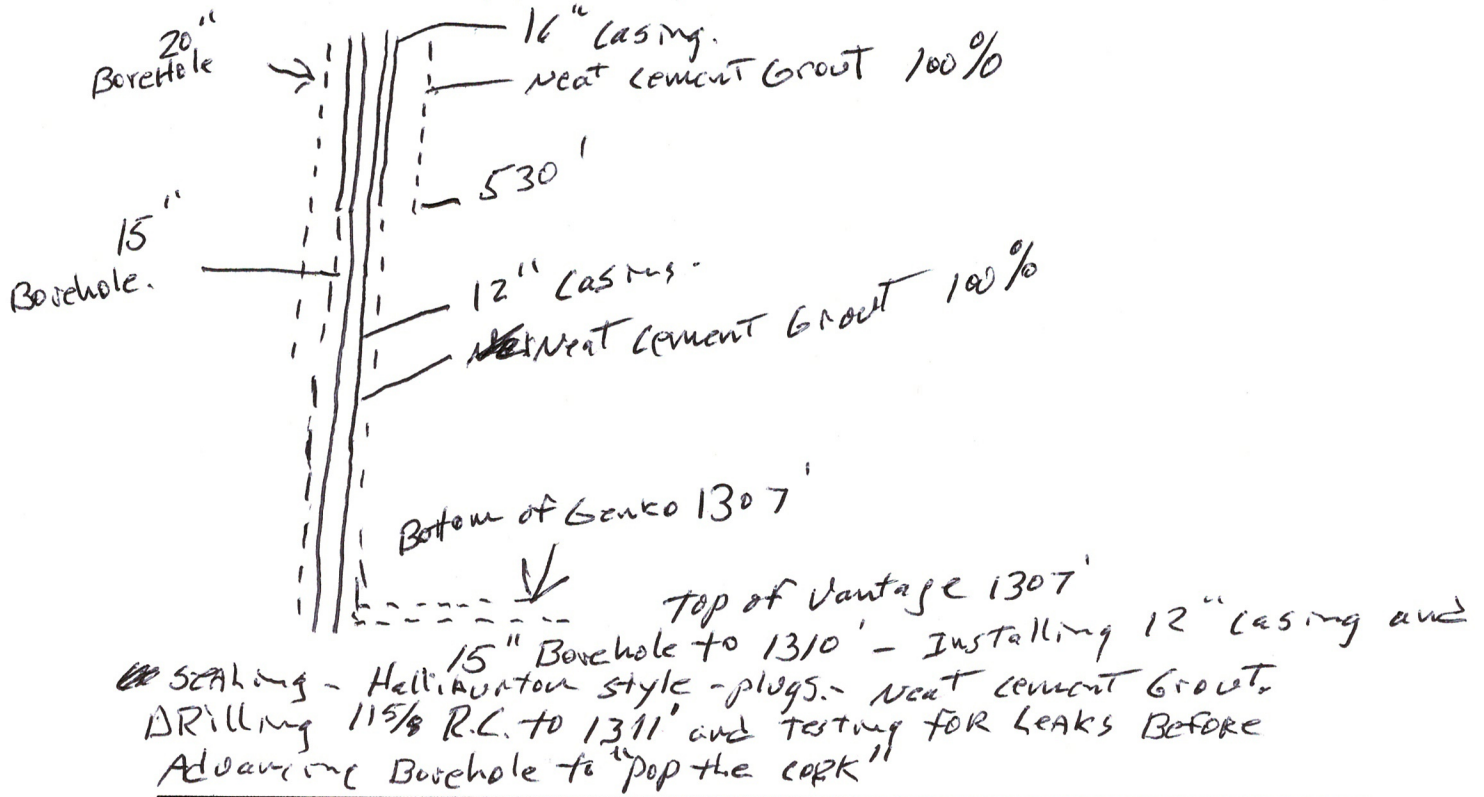 16" Casing.
20"
BoreHole
Neat Cement Grout 100%
530'
15"
Borehole.
12" Casing.
Neat Cement Grout 100%
Bottom of Genko 1307'
Top of Vantage 1307'
15" Borehole to 1310' - Installing 12" Casing and
Sealing - Halliburton style - plugs. - Neat Cement Grout.
DRilling 11 5/8 R.C. to 1311' and Testing FOR LEAKS BeFoRe
Advancing Borehole to "Pop the cork"